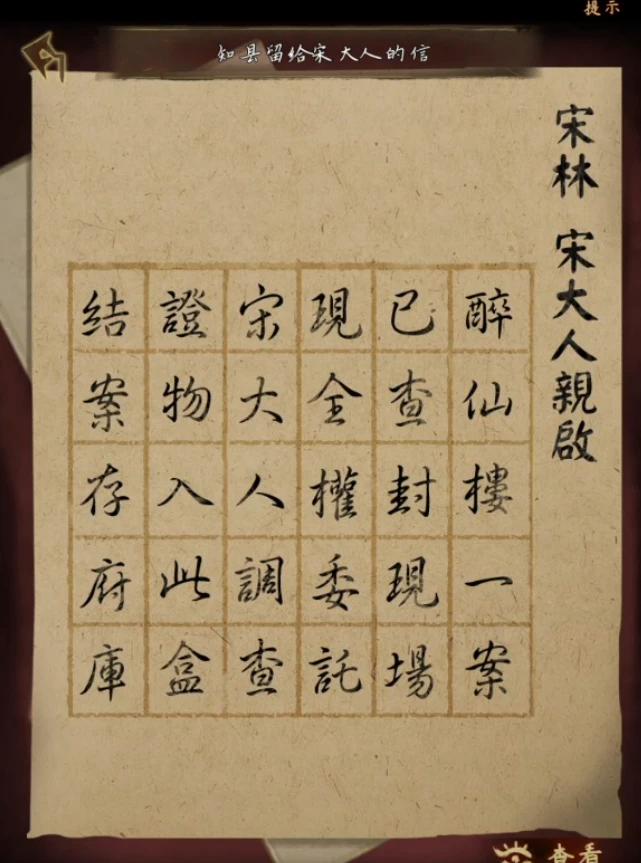 提示
知县留给宋大人的信
宋林 宋大人親啟
醉仙樓一案
已查封現場
現全權委託
宋大人調查
證物入此盒
結案存府庫
查看